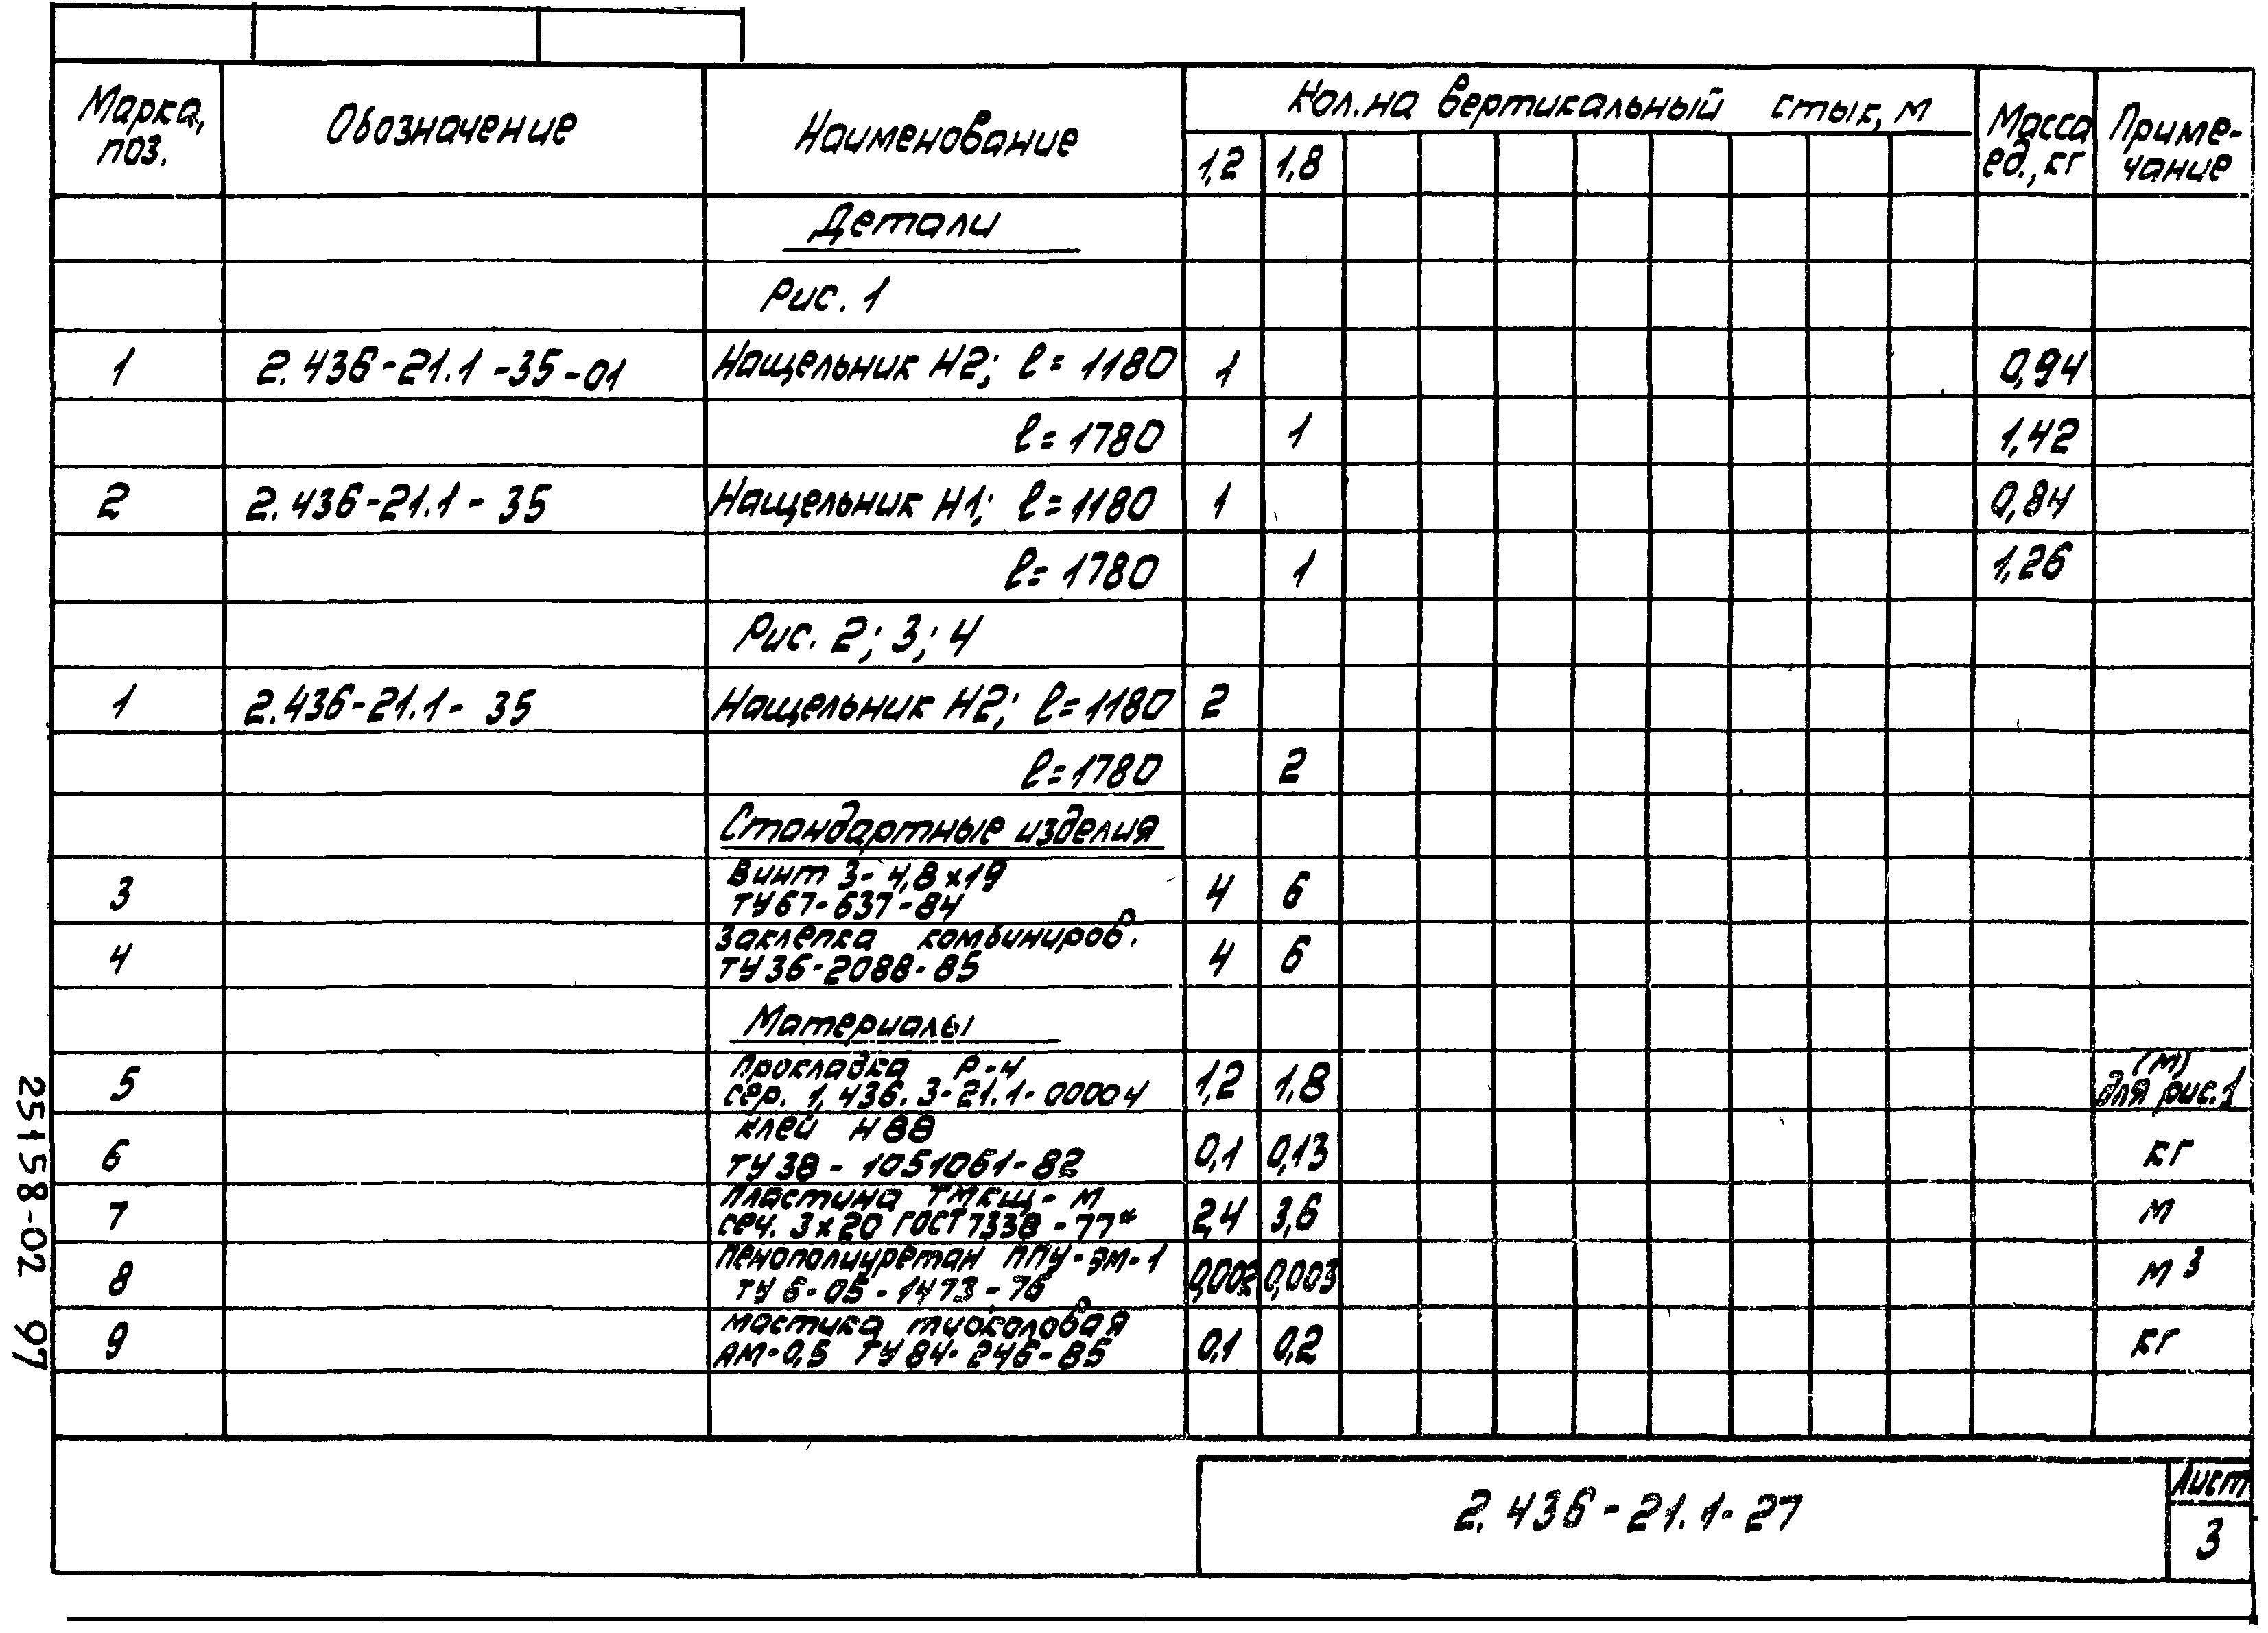 Марка, поз. Обозначение Наименование Кол. на вертикальный стык, м Масса ед., кг Приме-чание
1,2 1,8
Детали
Рис. 1
1 2.436-21.1-35-01 Нащельник Н2; ℓ=1180 1 0,94
ℓ=1780 1 1,42
2 2.436-21.1-35 Нащельник Н1; ℓ=1180 1 0,84
ℓ=1780 1 1,26
Рис. 2; 3; 4
1 2.436-21.1-35 Нащельник Н2; ℓ=1180 2
ℓ=1780 2
Стандартные изделия
Винт 3-4,8х19
3 ТУ67-637-84 4 6
Заклепка комбиниров.
4 ТУ36-2088-85 4 6
Материалы
Прокладка Р-4 (м)
5 сер. 1.436.3-21.1-00004 1,2 1,8 для рис.1
Клей Н88
6 ТУ38-1051061-82 0,1 0,13 кг
Пластина ТМКЩ-М
7 сеч. 3х20 ГОСТ 7338-77* 2,4 3,6 м
Пенополиуретан ППУ-ЭМ-1
8 ТУ 6-05-1473-76 0,002 0,003 м³
Мастика тиоколовая
9 АМ-0,5 ТУ84-246-85 0,1 0,2 кг
2.436-21.1-27
Лист
3
25158-02 97